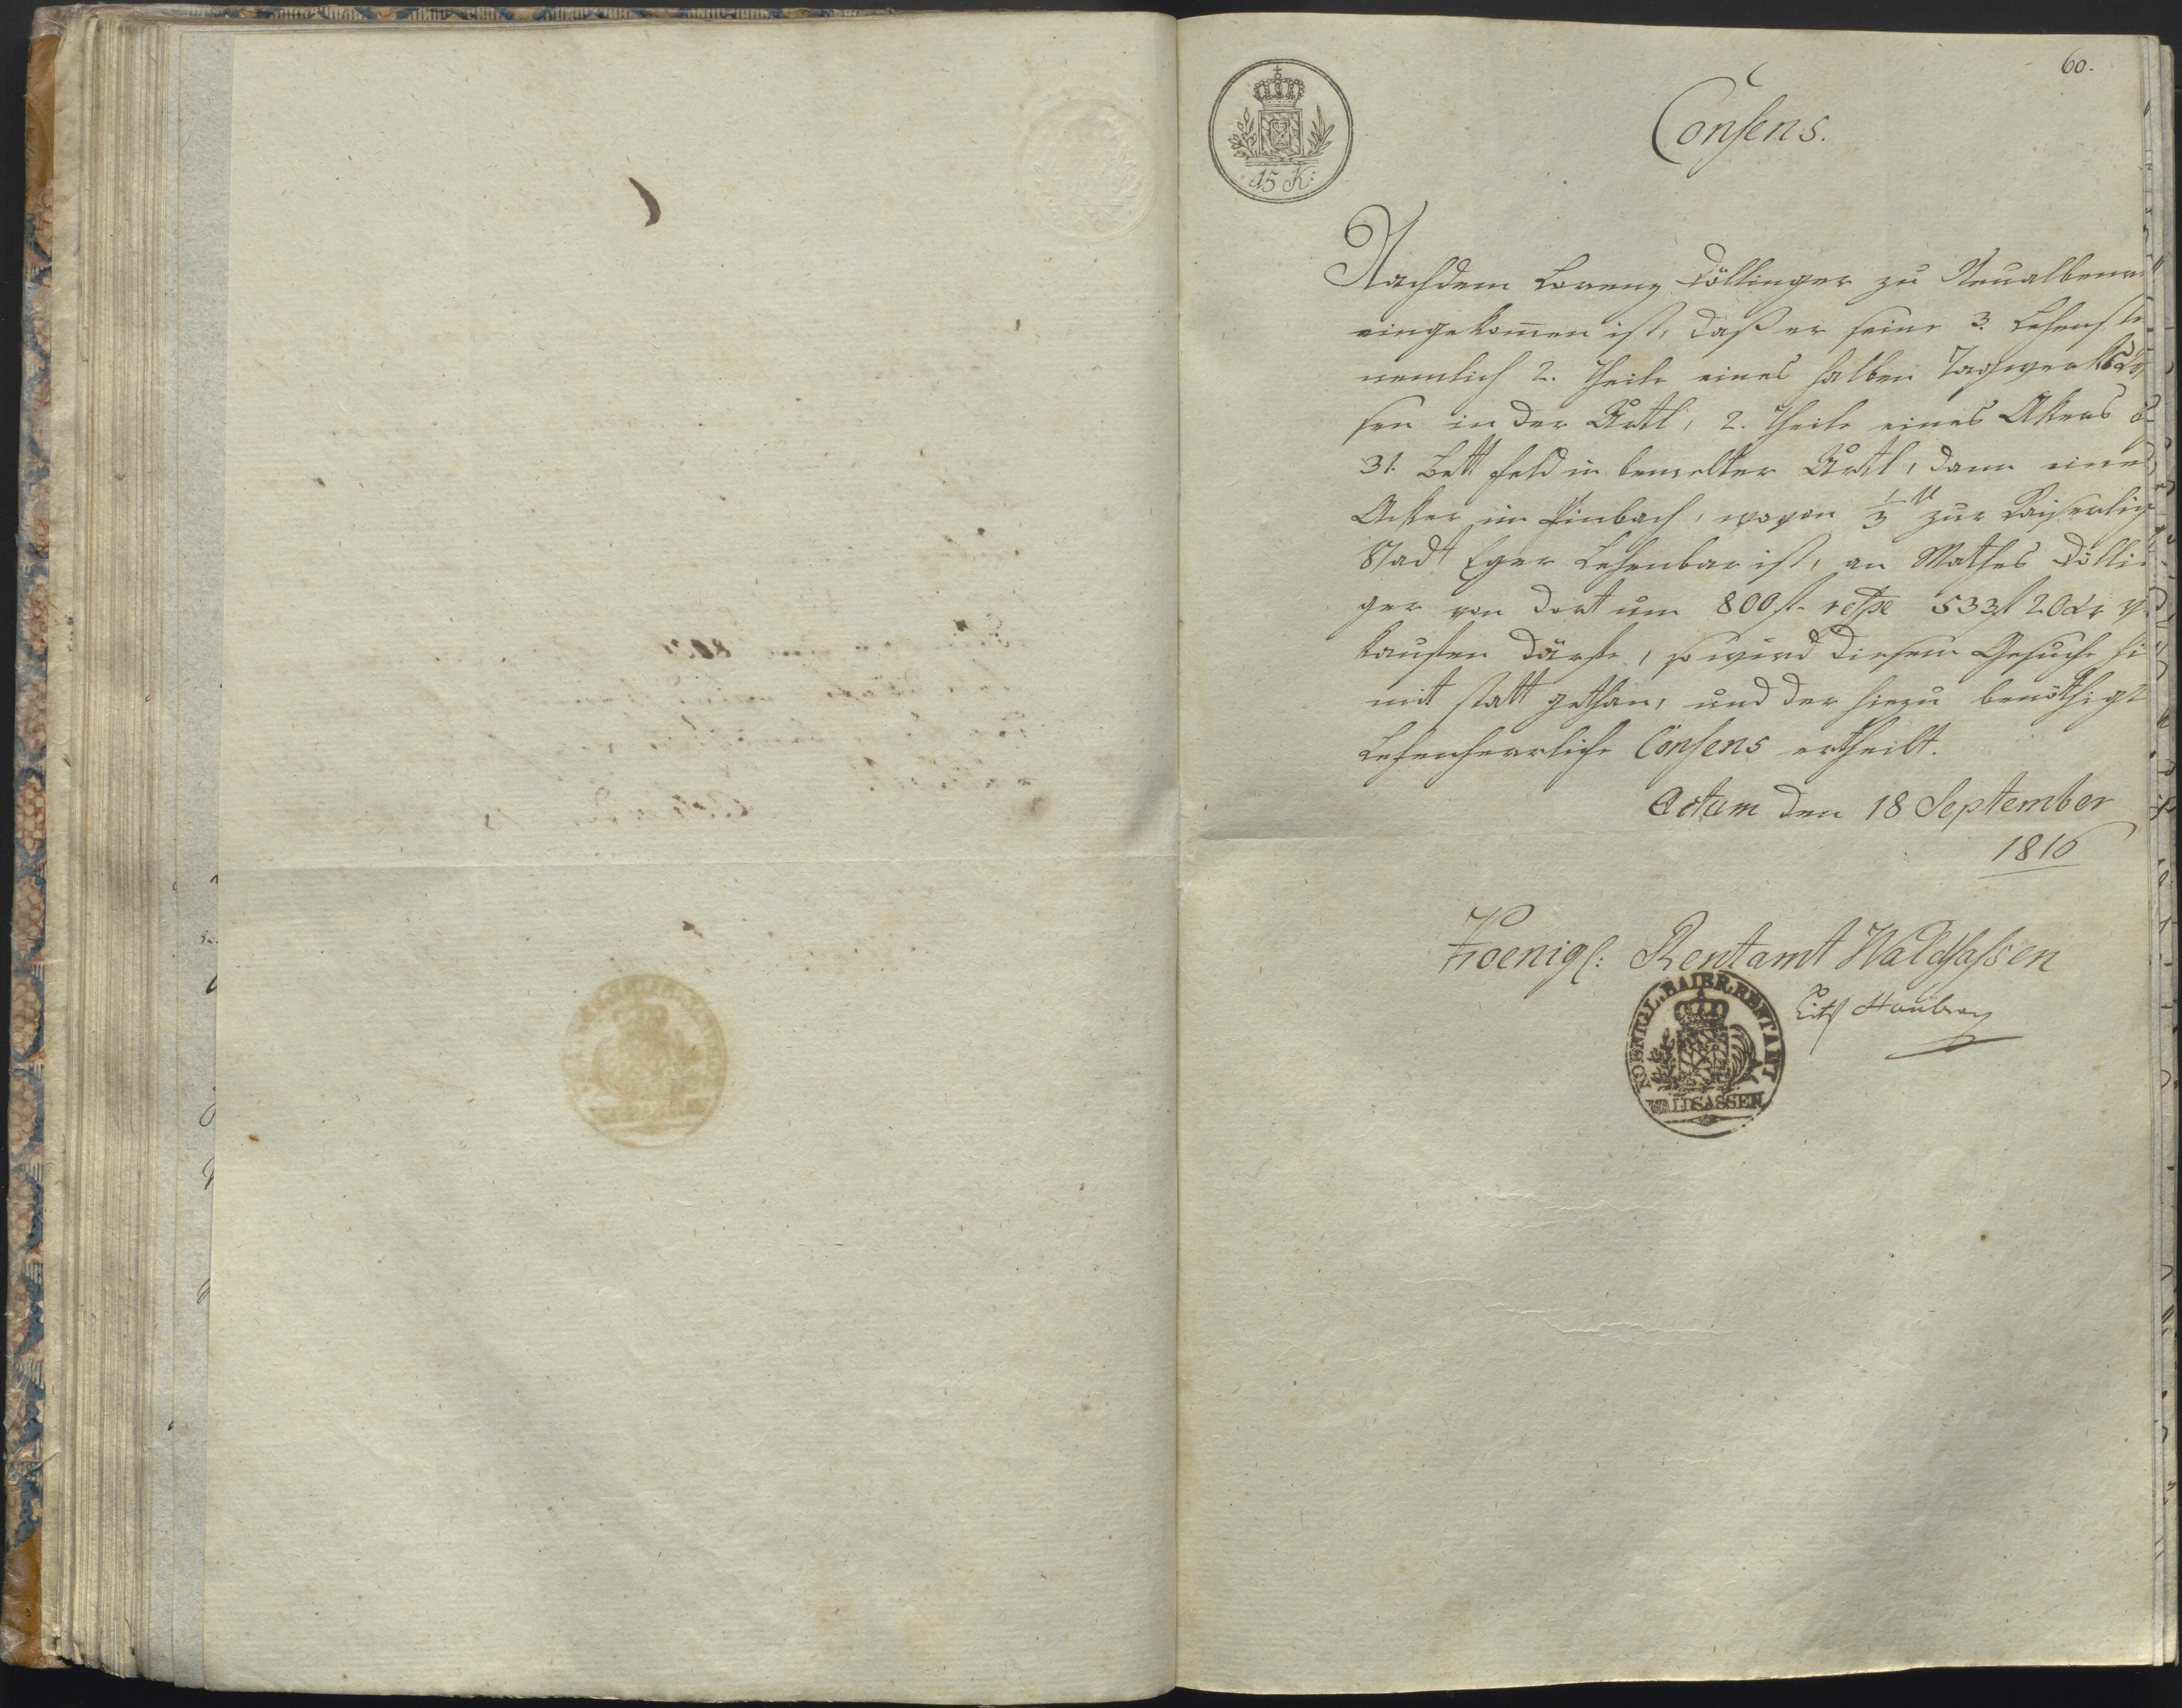 60.
15 K:
Consens.
Nachdem Lorenz Döllinger zu Neualbenr
eingekom̅en ist, daß er seine 3. Lehenst
nemlich 2. Theile eines halben Tagwerks
sen in der Ärtl, 2. Theile eines Akers
31. Bett feld in bemelter Ärtl, dann eines
Acker im Pinbach, wovon 1/3tl zur Kaiserlich
Stadt Eger Lehenbar ist, an Mathes Dölli
ger von dort um 800 f. respe 533 f 20 kr v
kaufen därfe, so wird diesem Gesuche hi
mit statt gethan, und der hiezu benöthigt
Lehenherrliche Consens ertheilt.
Actum den 18 September
1816
Koenigl: Rentamt Waldsassen
KOENIGL. BAIER. RENTAMT
WALDSASSEN